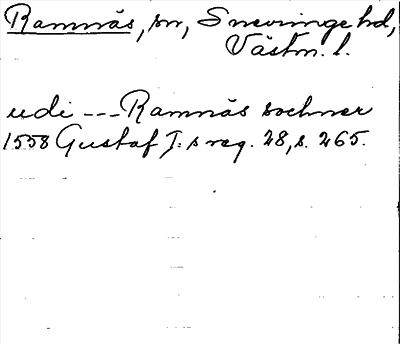 Ramnäs, sn, Snevringe hd,
Västm. l.
udi --- Ramnäs sochner
1558 Gustaf I:s reg. 28, s. 265.